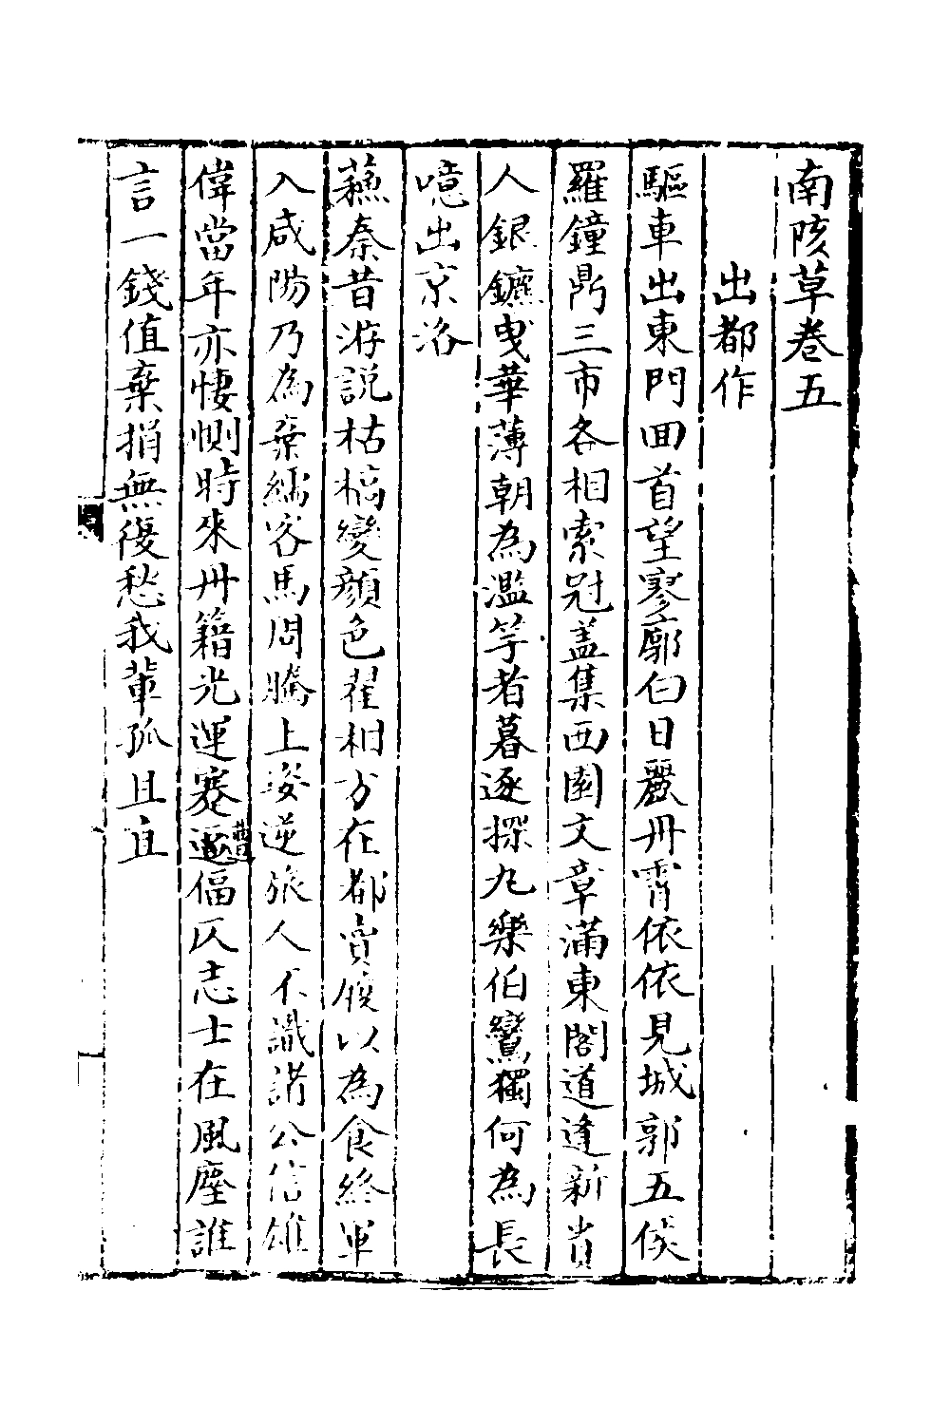 南陔草卷五
出都作
驅車出東門回首望寥廓白日麗丹霄依依見城郭五侯
羅鐘鼎三市各相索冠蓋集西園文章滿東閣道逢新貴
人銀鑣曳華薄朝為濫竽者暮逐探九樂伯鸞獨何為長
噫出京洛
蘓秦昔游説枯槁變顔色翟相方在都賣履以為食終軍
入咸陽乃為棄繻客馬周騰上姿逆旅人不識諸公信雄
偉當年亦悽惻時來丹籍光運蹇遭偪仄志士在風塵誰
言一錢值棄捐無復愁我輩孤且直